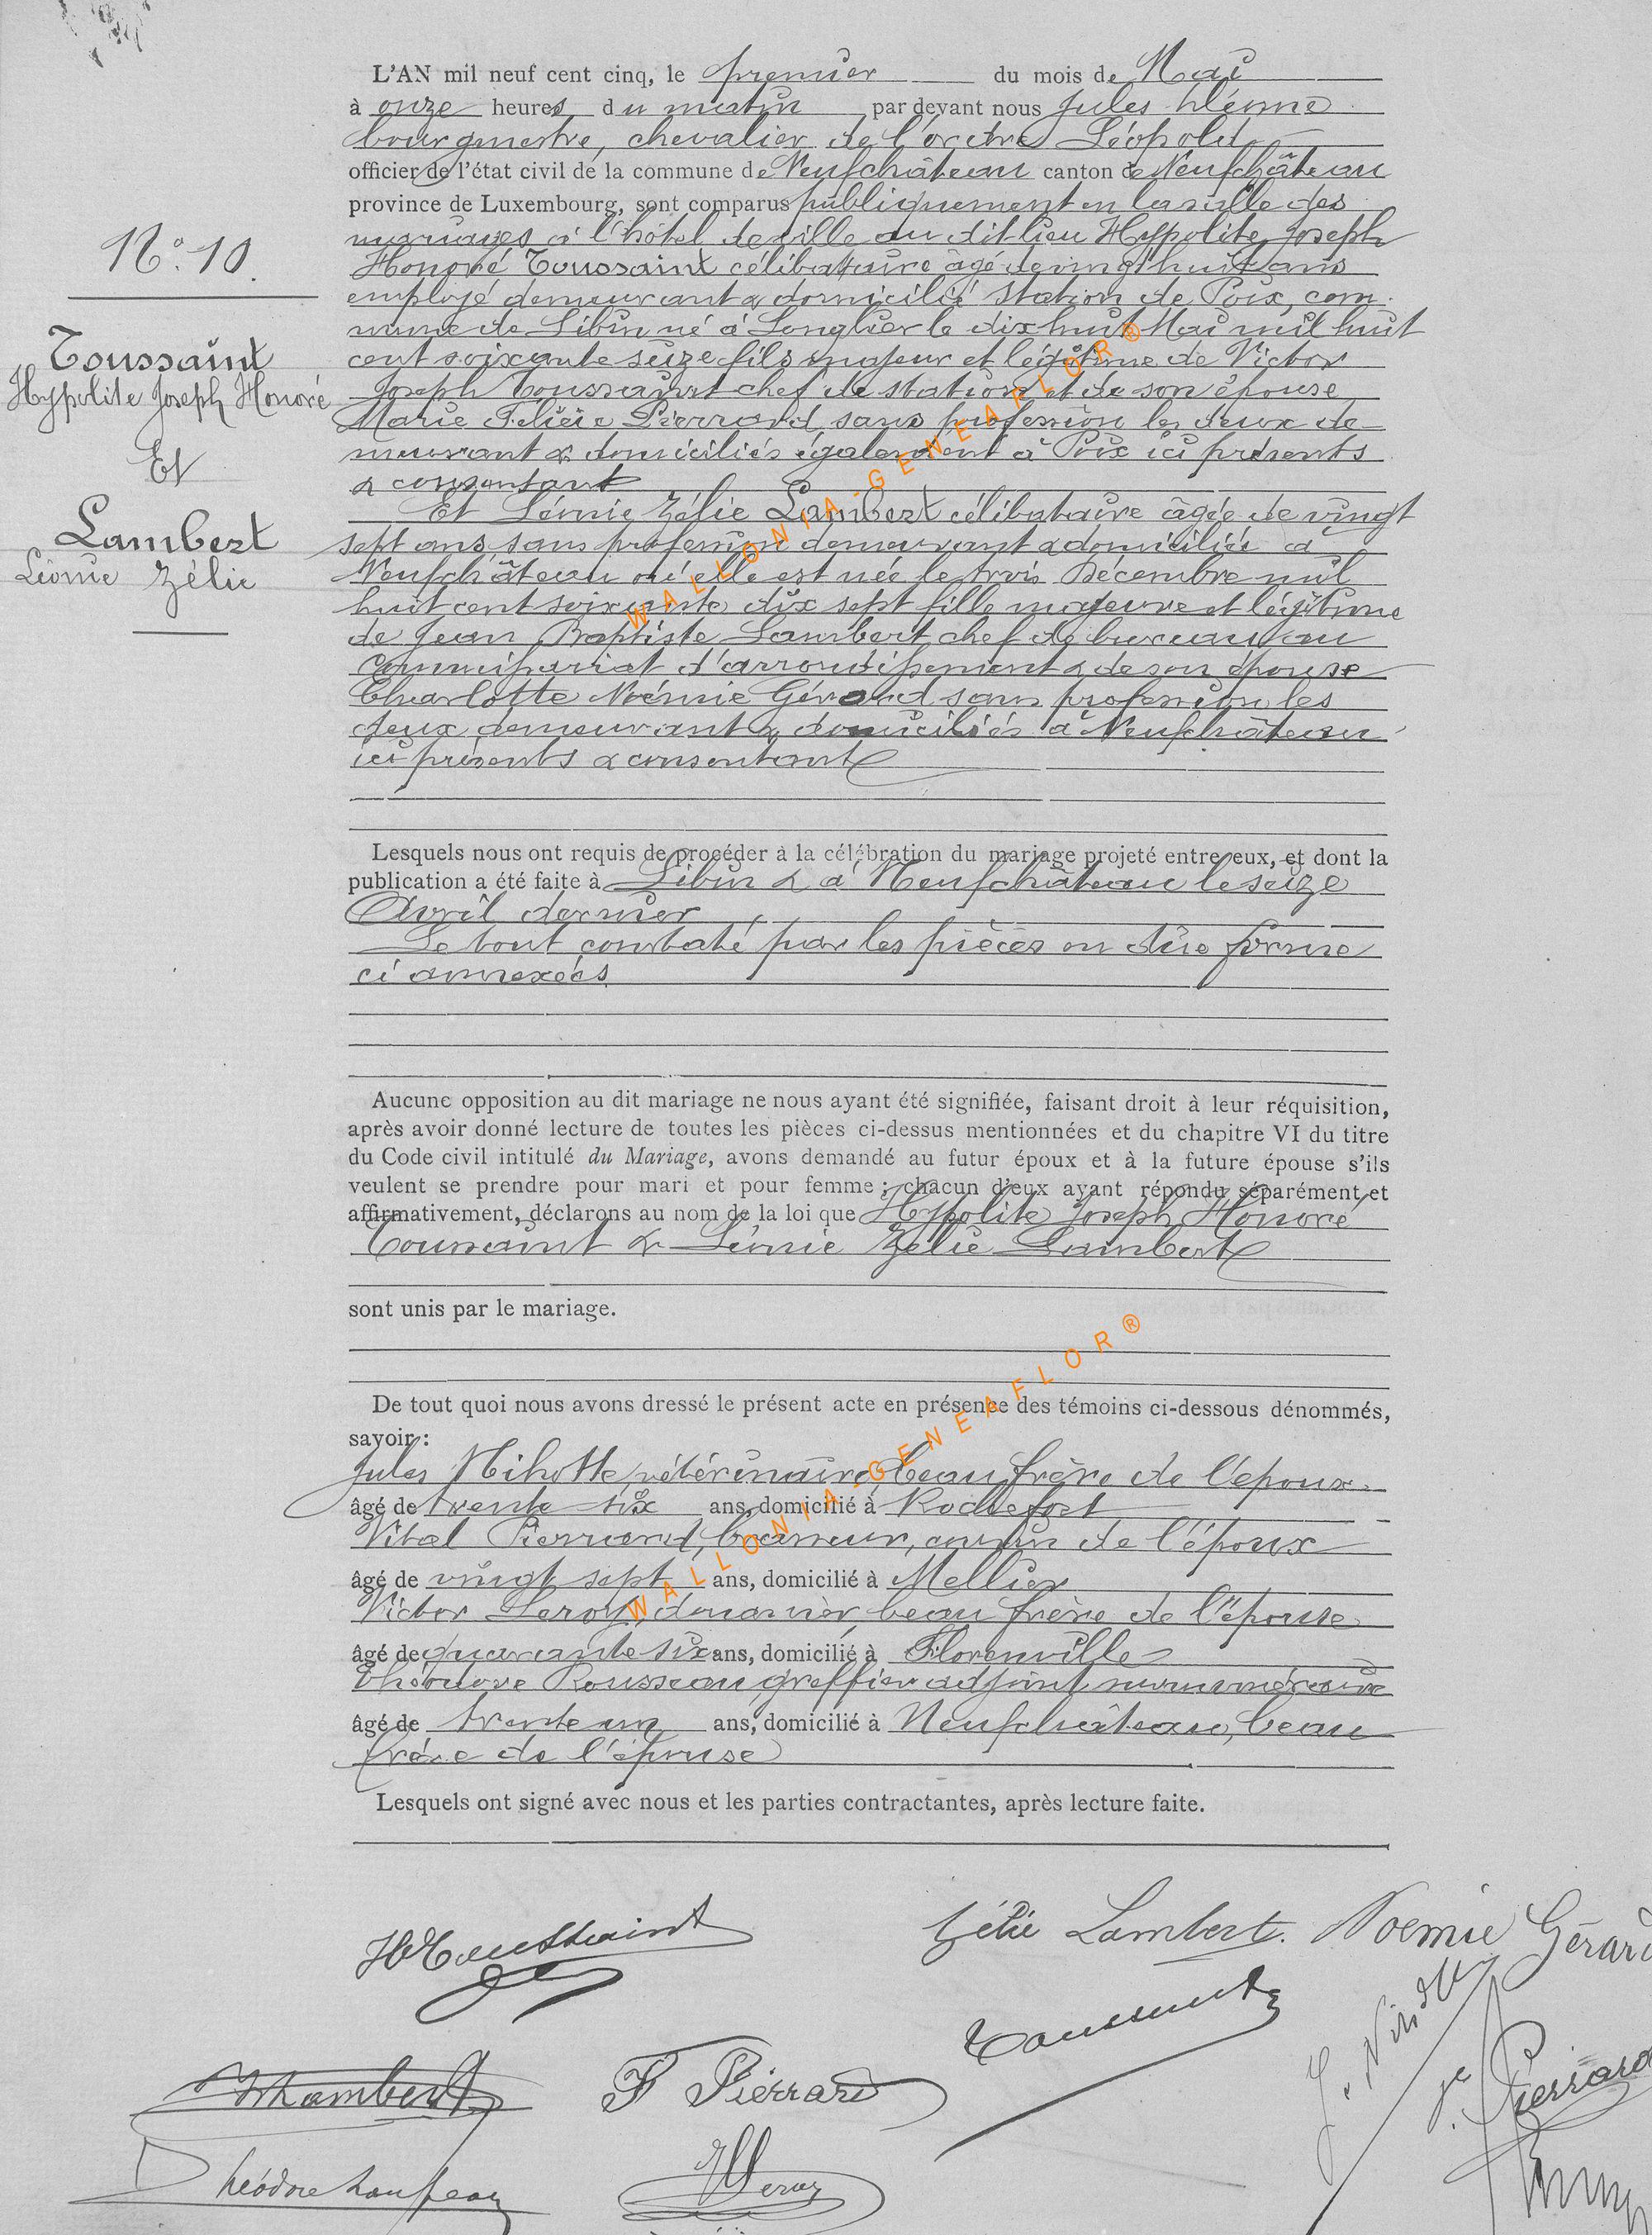 L'AN mil neuf cent cinq, le premier du mois de Mai
à onze heures du matin par devant nous Jules
bourgmestre, chevalier de l'ordre Léopold
officier de l'état civil de la commune de Neufchâteau canton de Neufchâteau
province de Luxembourg, sont comparus publiquement en la salle des
mariages à l'hôtel de ville du dit lieu Hyppolite Joseph
N° 10.
Honoré Toussaint célibataire âgé de vingt huit ans
employé demeurant & domicilié station de Poix, com-
mune de Libin né à Longlier le dix huit Mai mil huit
Toussaint
Hyppolite Joseph Honoré
Et
Lambert
Léonie Zélie
cent soixante seize fils majeur et légitime de Victor
Joseph Toussaint chef de station et de son épouse
Marie Félicie Pierrard sans profession les deux de-
meurant & domiciliés également à Poix ici présents
& consentant
Et Léonie Zélie Lambert célibataire âgée de vingt
sept ans sans profession demeurant & domiciliée à
Neufchâteau où elle est née le trois Décembre mil
huit cent soixante dix sept fille majeure et légitime
de Jean Baptiste Lambert chef de bureau au
Commissariat d'arrondissement & de son épouse
Charlotte Noémie Gérard sans profession les
deux demeurant & domiciliés à Neufchâteau
ici présents & consentant
Lesquels nous ont requis de procéder à la célébration du mariage projeté entre eux, et dont la
publication a été faite à Libin & à Neufchâteau le seize
Avril dernier
Le tout constaté par les pièces en dûe forme
ci annexées
Aucune opposition au dit mariage ne nous ayant été signifiée, faisant droit à leur réquisition,
après avoir donné lecture de toutes les pièces ci-dessus mentionnées et du chapitre VI du titre
du Code civil intitulé du Mariage, avons demandé au futur époux et à la future épouse s'ils
veulent se prendre pour mari et pour femme ; chacun d'eux ayant répondu séparément et
affirmativement, déclarons au nom de la loi que Hyppolite Joseph Honoré
Toussaint & Léonie Zélie Lambert
sont unis par le mariage.
De tout quoi nous avons dressé le présent acte en présence des témoins ci-dessous dénommés,
savoir :
Jules vétérinaire, beau frère de l'époux
âgé de trente six ans, domicilié à Rochefort
Vital Pierrard, brasseur, cousin de l'époux
âgé de vingt sept ans, domicilié à Mellier
Victor Leroy, douanier, beau frère de l'épouse
âgé de quarante six ans, domicilié à Florenville
Théodore greffier adjoint surnuméraire
âgé de trente un ans, domicilié à Neufchâteau, beau
frère de l'épouse
Lesquels ont signé avec nous et les parties contractantes, après lecture faite.
HToussaint
Zélie Lambert. Noémie Gérard
Toussaint
Lambert
F Pierrard
Pierrard
Théodore
Leroy
WALLONIA-GENEAFLOR®
WALLONIA-GENEAFLOR®